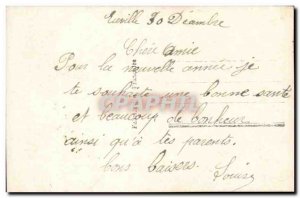 Eurville 30 Décembre
Chère Amie
Pour la nouvelle année je
te souhaite une bonne santé
et beaucoup de bonheur
ainsi qu'à tes parents.
bons baisers. Louise
PAPRIKA